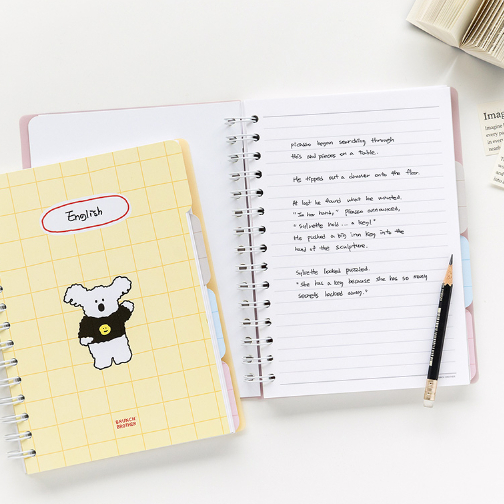 English
BRUNCH
BROTHER
picasso began searching through
this and pieces on a table.
He tipped out a drawer onto the floor.
At last he found what he wanted.
"In her hand," Picasso announced,
"Sylvette hold ... a key!"
He pushed a big iron key into the
hand of the sculpture.
Sylvette looked puzzled.
"She has a key because she has so many
secrets locked away."
Imag